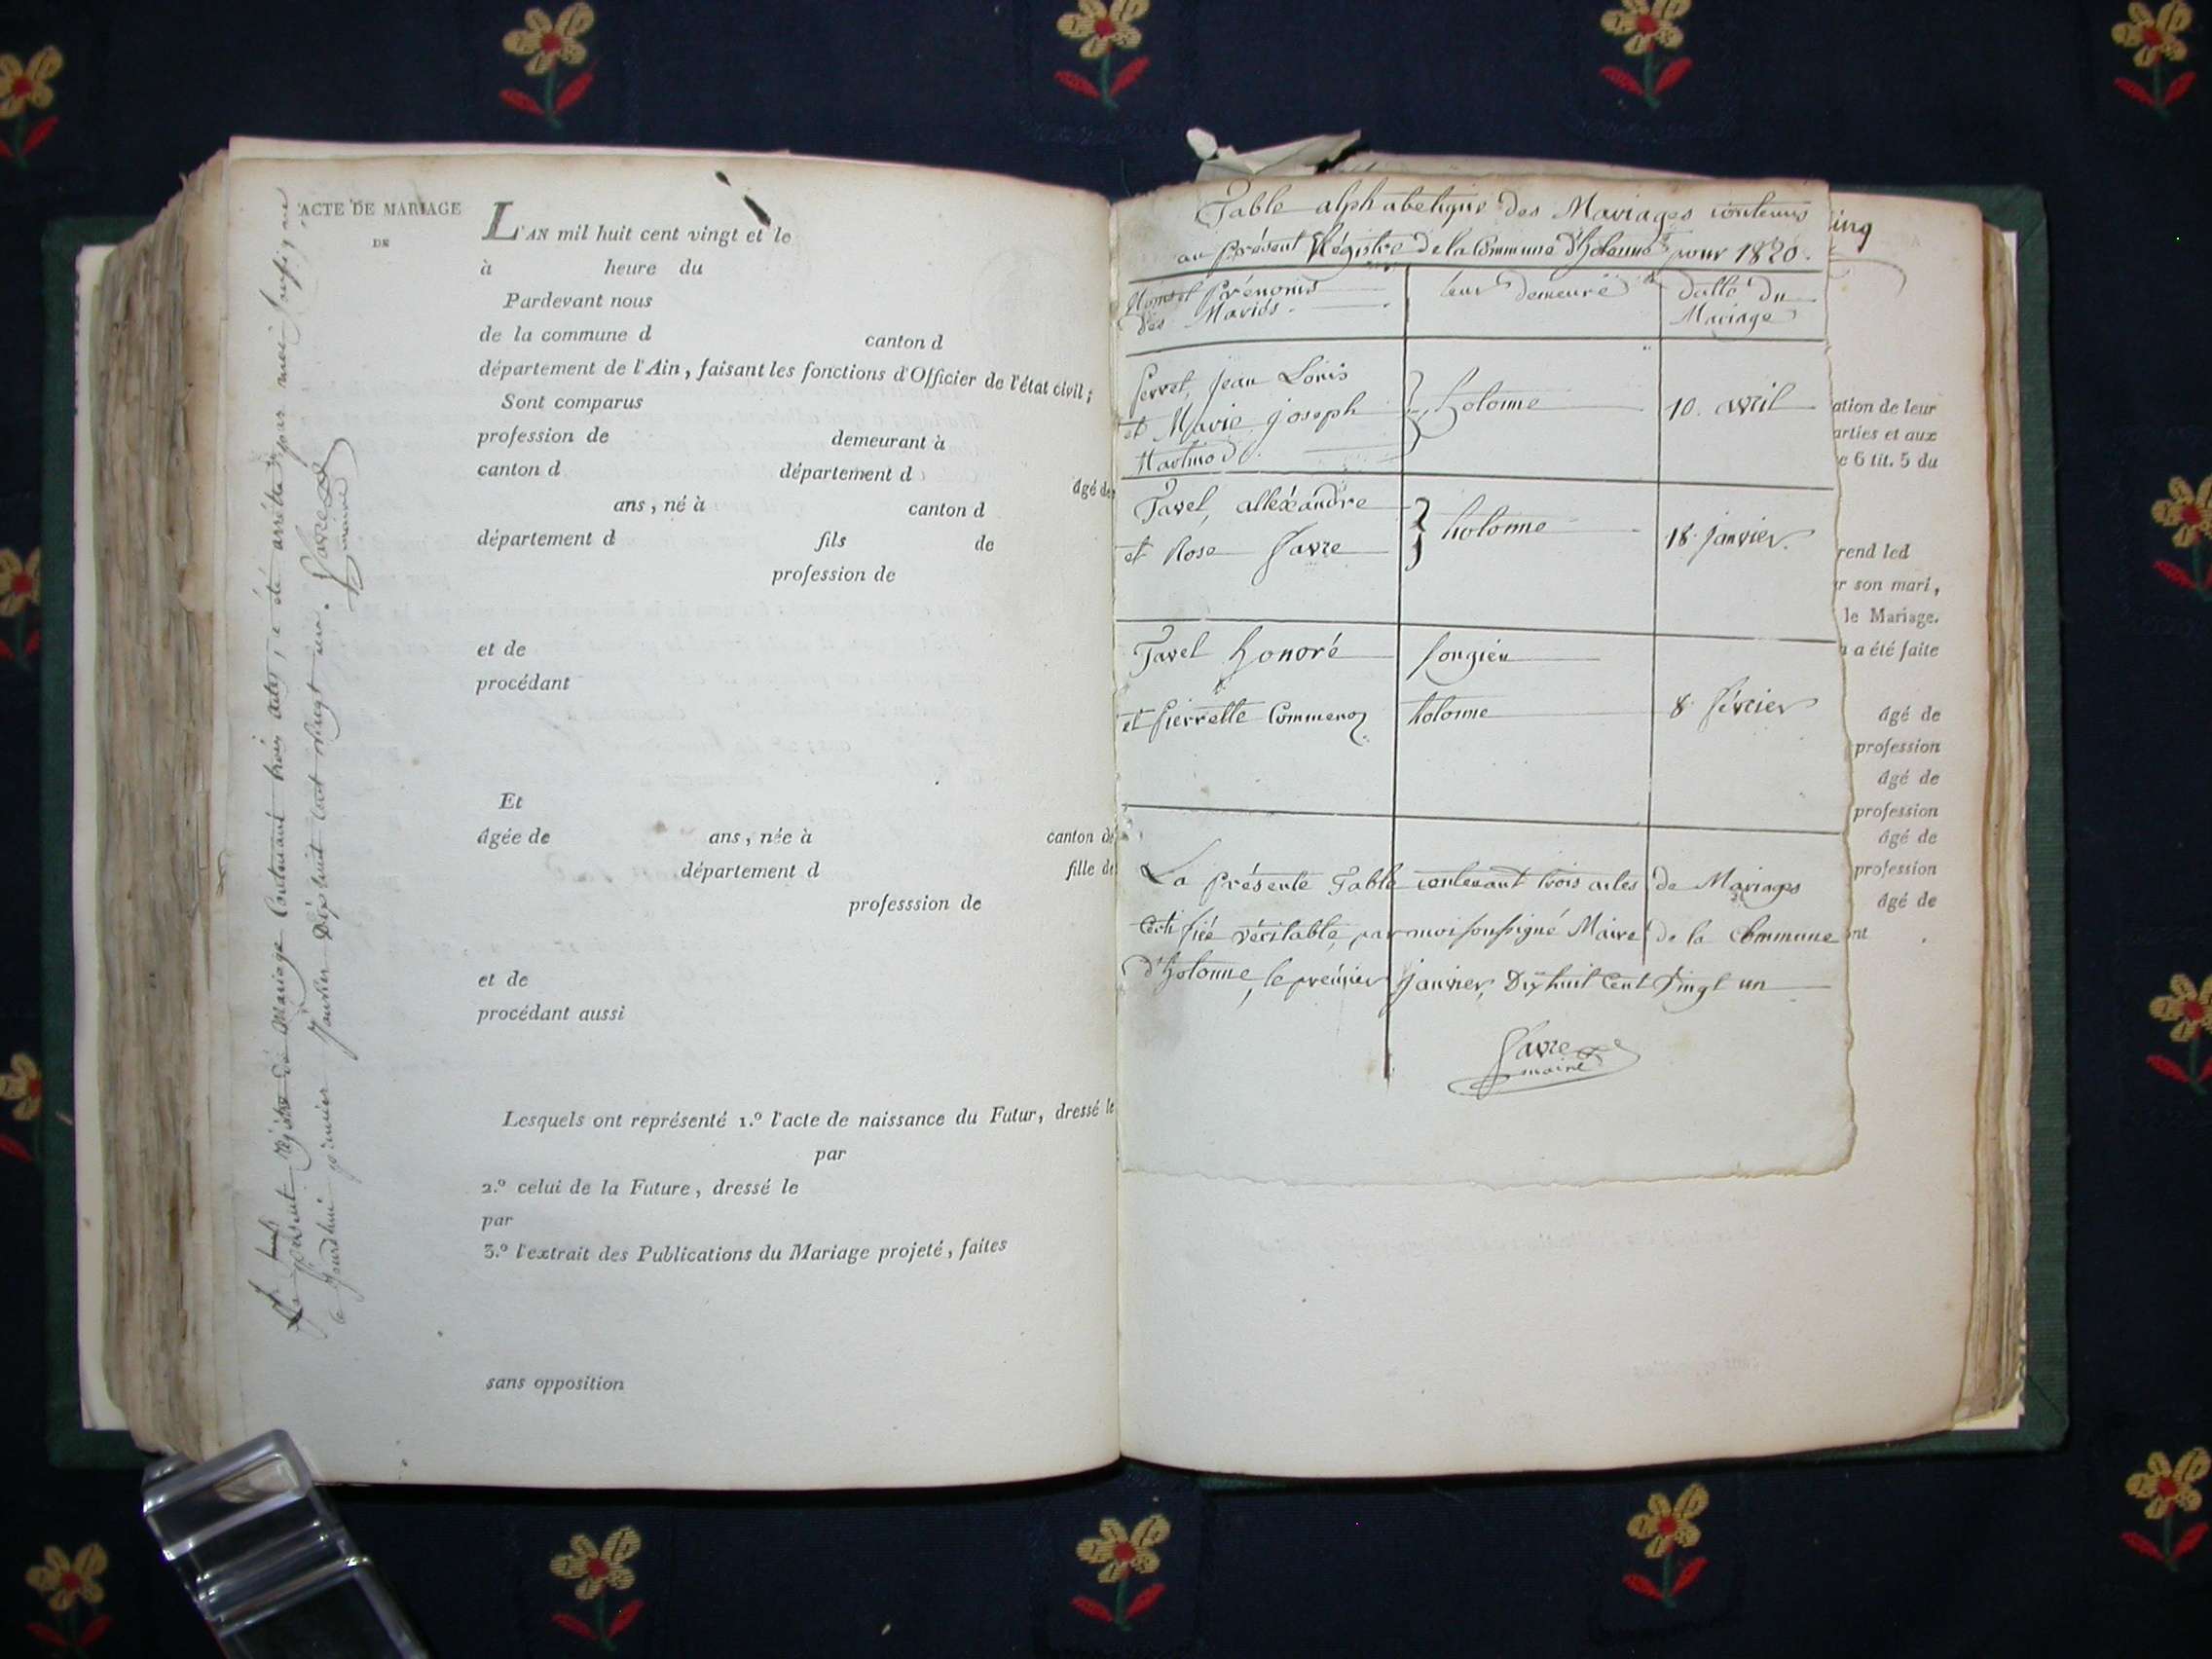 ACTE DE MARIAGE
DE
L'AN mil huit cent vingt et le
à heure du
Pardevant nous
de la commune d canton d
département de l'Ain, faisant les fonctions d'Officier de l'état civil;
Sont comparus
profession de demeurant à
canton d département d âgé de
ans, né à canton d
département d fils de
profession de
et de
procédant
Et
âgée de ans, née à canton de
département d fille de
professsion de
et de
procédant aussi
Lesquels ont représenté 1.º l'acte de naissance du Futur, dressé le
par
2.º celui de la Future, dressé le
par
3.º l'extrait des Publications du Mariage projeté, faites
sans opposition
Le présent régistre de Mariage Contenant trois actes, a été arrêtté par moi soussigné
ce jourdhui premier Janvier Dixhuit cent vingt un. Favre
maire
Table alphabetique des Mariages contenus
au présent Régistre de la Commune d'hotonne pour 1820.
Noms et Prénoms leur demeure datte du
des Mariés. Mariage
Perret, Jean Louis
et Marie joseph hotonne 10. avril
Tavel, alléxandre
et Rose Favre hotonne 18. janvier.
Tavel honoré songieu
et pierrette Commenoz hotonne 8 février
La présente Table contenant trois actes de Mariages
Certifiée véritable, par moi soussigné Maire de la Commune
d'hotonne, le premier janvier, Dixhuit Cent Vingt un
Favre
maire
ing
ation de leur
arties et aux
e 6 tit. 5 du
rend led
r son mari,
le Mariage.
a été faite
âgé de
profession
âgé de
profession
âgé de
profession
âgé de
nt